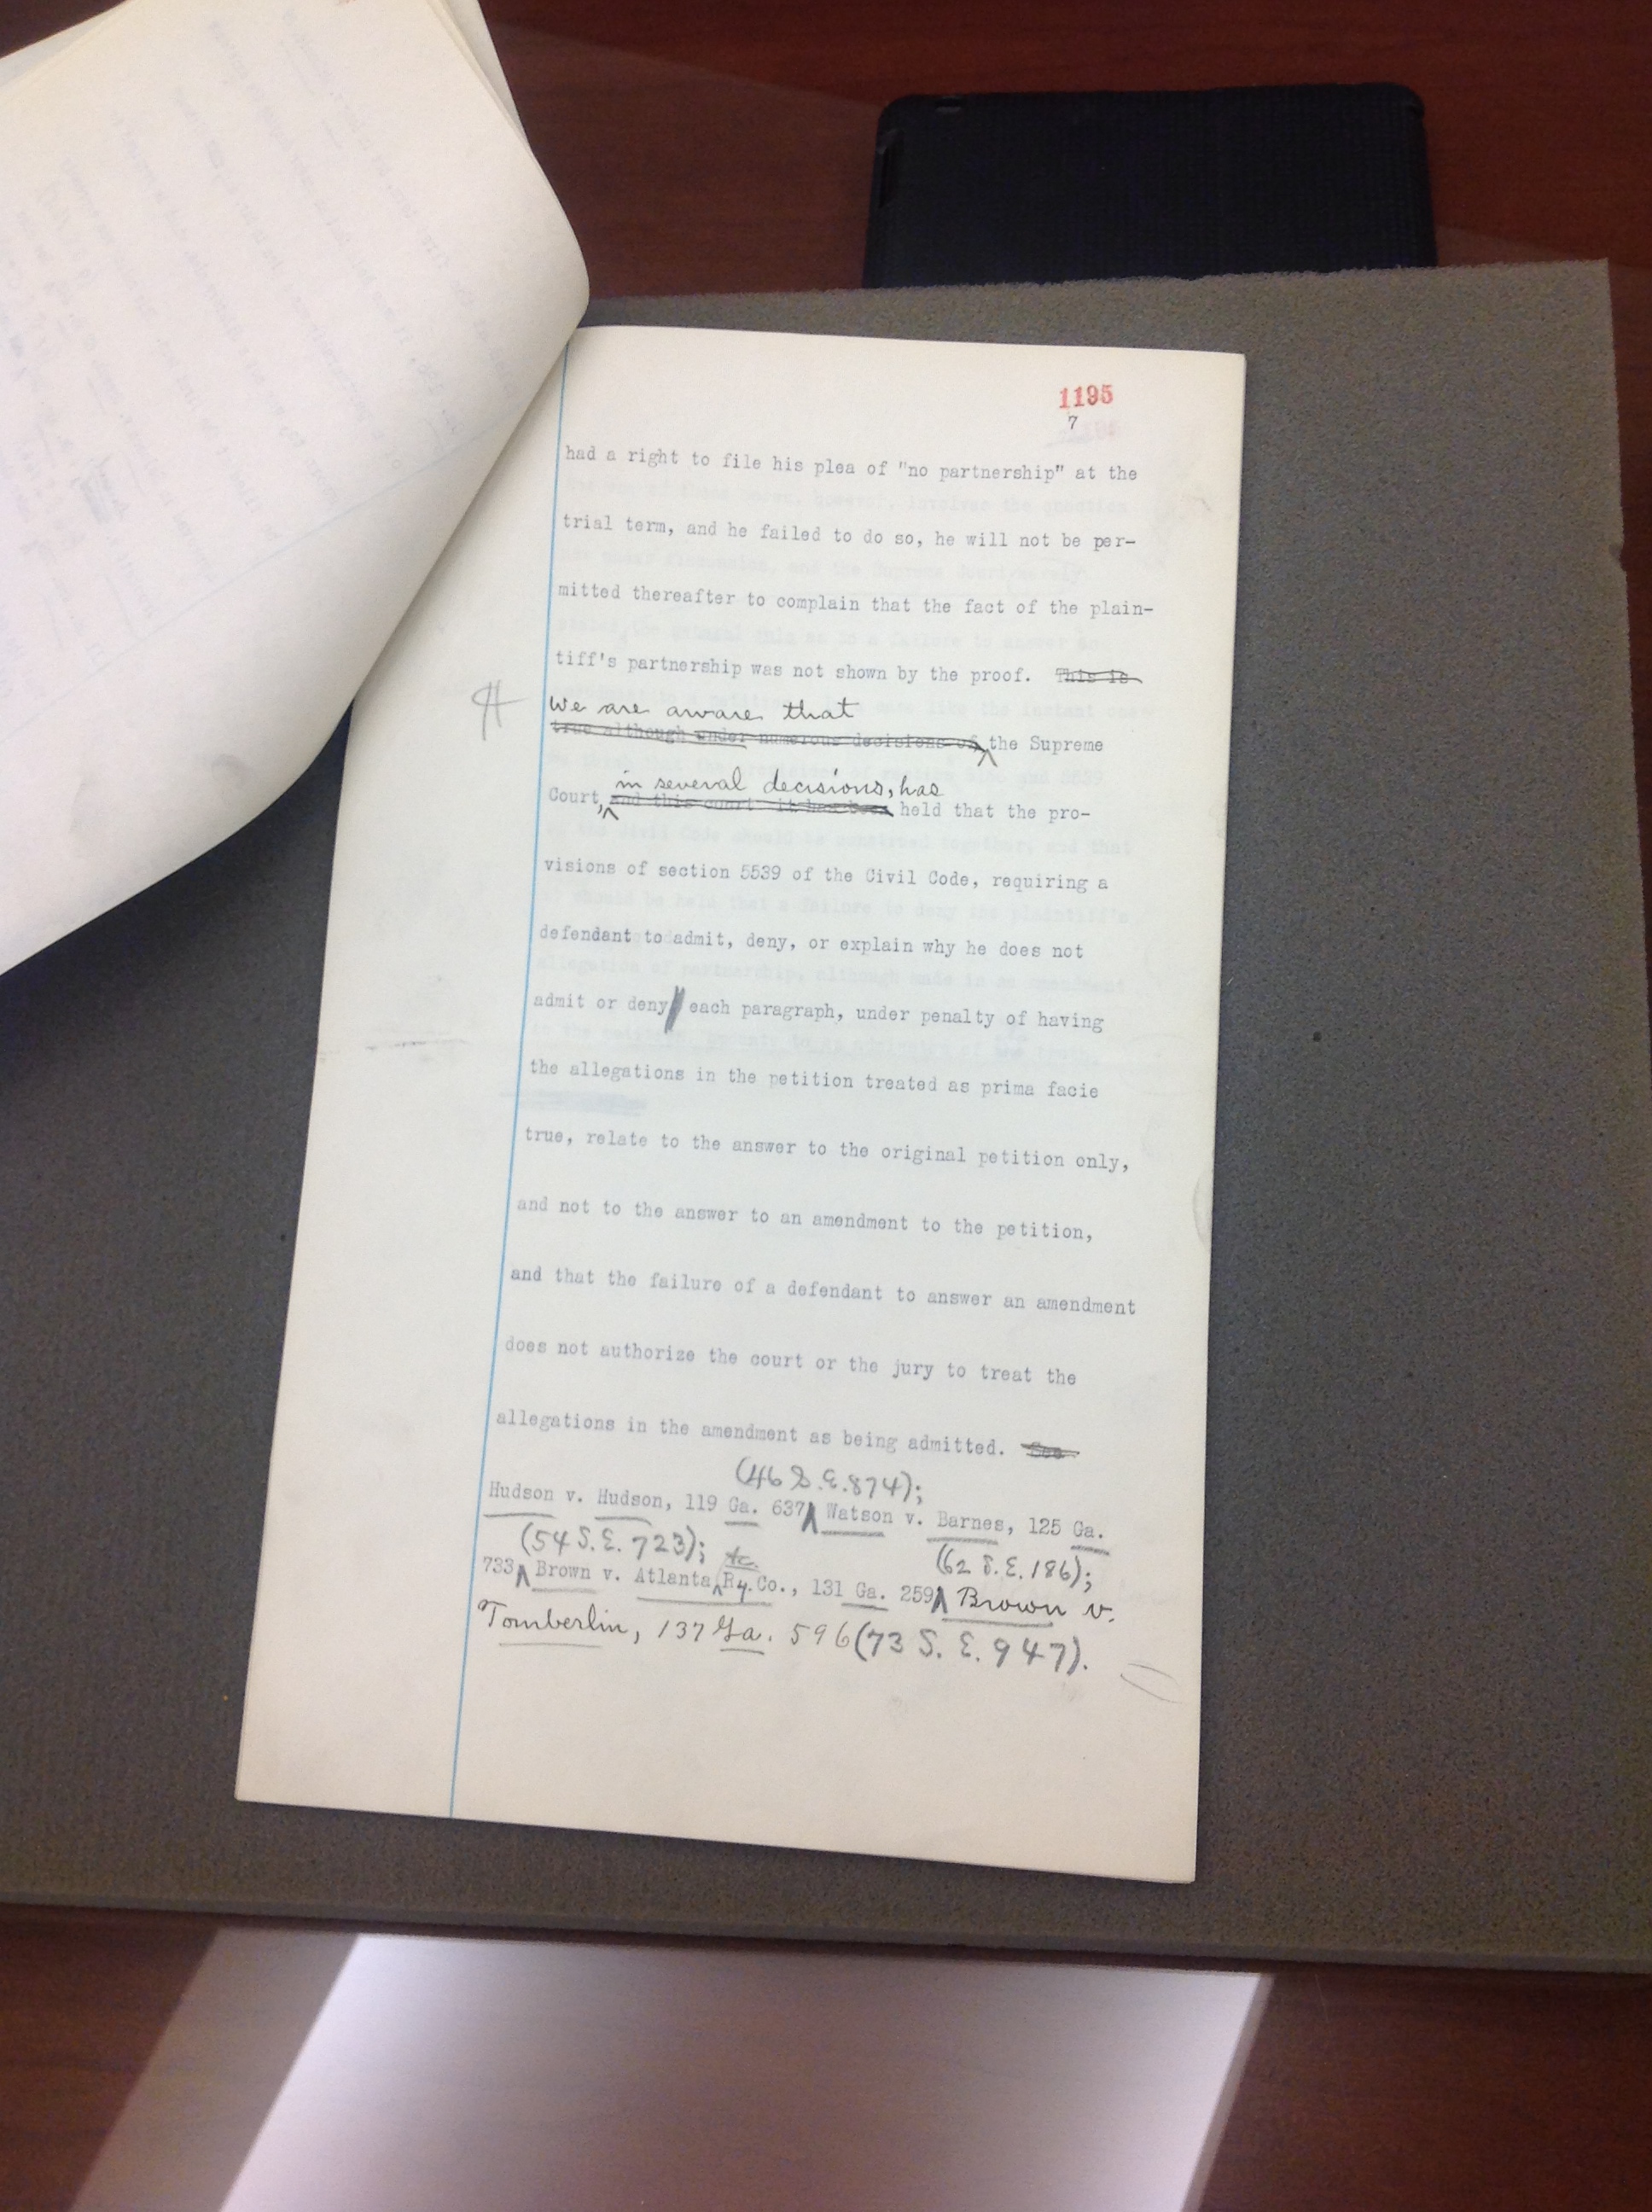 1195
7
had a right to file his plea of "no partnership" at the
trial term, and he failed to do so, he will not be per-
mitted thereafter to complain that the fact of the plain-
tiff's partnership was not shown by the proof. This is
¶ We are aware that
true although under numerous decisions of the Supreme
in several decisions, has
Court, and this court it has been held that the pro-
visions of section 5539 of the Civil Code, requiring a
defendant to admit, deny, or explain why he does not
admit or deny each paragraph, under penalty of having
the allegations in the petition treated as prima facie
true, relate to the answer to the original petition only,
and not to the answer to an amendment to the petition,
and that the failure of a defendant to answer an amendment
does not authorize the court or the jury to treat the
allegations in the amendment as being admitted. See
(46 S.E. 874);
Hudson v. Hudson, 119 Ga. 637 Watson v. Barnes, 125 Ga.
(54 S.E. 723); &c. (62 S.E. 186);
733 Brown v. Atlanta Ry. Co., 131 Ga. 259 Brown v.
Tomberlin, 137 Ga. 596 (73 S.E. 947).